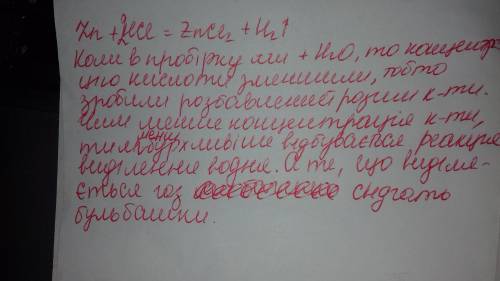 Zn + 2HCl = ZnCl₂ + H₂↑
Коли в пробірку ми + H₂O, то концентра
цію кислоти зменшили, тобто
зробили розбавлений розчин к-ти.
Чим менше концентрація к-ти,
тим менш бурхливіше відбувається реакція
виділення водню. А те, що виділя-
ється газ свідчать
бульбашки.